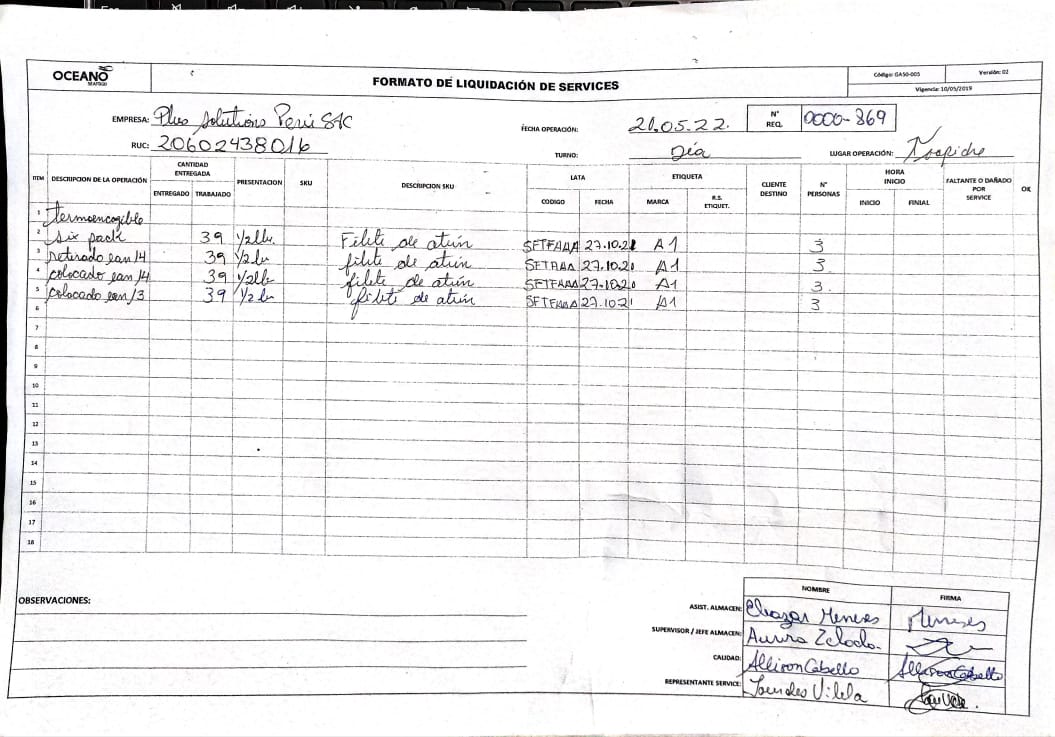 OCEANO
SEAFOOD
FORMATO DE LIQUIDACIÓN DE SERVICES
Código: GA50-005
Versión: 02
Vigencia: 10/05/2019
EMPRESA: Plus Solutions Perú SAC
FECHA OPERACIÓN: 21.05.22.
N° REQ. 0000-869
RUC: 20602438016
TURNO: Día
LUGAR OPERACIÓN: Trapiche
ITEM DESCRIPCION DE LA OPERACIÓN CANTIDAD ENTREGADA ENTREGADO TRABAJADO PRESENTACION SKU DESCRIPCION SKU LATA CODIGO FECHA ETIQUETA MARCA R.S. ETIQUET. CLIENTE DESTINO N° PERSONAS HORA INICIO INICIO FINIAL FALTANTE O DAÑADO POR SERVICE OK
1 termoencogible
2 six pack 39 1/2lb. Filete de atún 27.10.21 A1 3
3 retirado ean 14 39 1/2lb filete de atún 27.10.21 A1 3.
4 colocado ean 14 39 1/2lb filete de atún 27.10.20 A1 3.
5 colocado ean 13 39 1/2 lb filete de atún 27.10.21 A1 3
6
7
8
9
10
11
12
13
14
15
16
17
18
OBSERVACIONES:
NOMBRE FIRMA
ASIST. ALMACEN: Eleazar Meneses Meneses
SUPERVISOR / JEFE ALMACEN: Aurora
CALIDAD: Allison Cabello Allison Cabello
REPRESENTANTE SERVICE: Lourdes Vilela